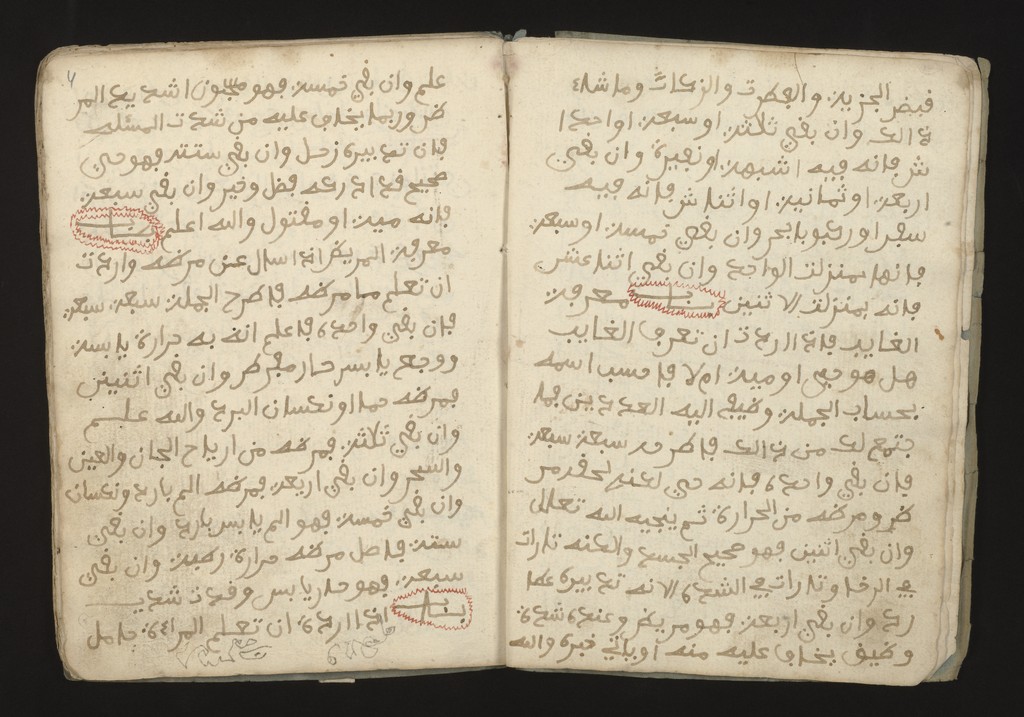 فبض الجزية والفطرة والزكاة وما شاء
ذالك وان بفي ثلاثة او سبعة او احدا
ش فانه فيه اشبهة او نفيرة وان بفي
اربعة او ثمانية او اثنا ش فانه فيه
سفر او ركوب بحر وان بفي خمسة او سبعة
فانها بمنزلت الواحد وان بفي اثنا عشر
فانه بمنزلت الاثنين باب معرفة
الغايب فاذا اردت ان تعرف الغايب
هل هو حي او ميت ام لا فاحسب اسمه
بحساب الجملة وضيف اليه العدد ين فما
جتمع لك من ذالك فاطرحه سبعة سبعة
فان بفي واحد فانه حي لكنه لحفه من
ضر ومرضه من الحرارة ثم ينجيه الله تعالى
وان بفي اثنين فهو صحيح الجسد ولاكنه تارات
في الرخا وتارات في الشدة لانه تدبيره عطا
رد وان بفي اربعة فهو مريض وعنده شدة
وضيق يخاف عليه منه اوياتي خبره والله
علم وان بفي خمسة فهو مسجون اشديد المر
ض وربما يخاف عليه من شدت المسئلة
فان تدبيره زحل وان بفي ستة فهو حي
صحيح فد ادركه فضل وخير وان بفي سبعة
فانه ميت او مفتول والله اعلم باب
معرفة المريض اذا اسال عن مرضه واردت
ان تعلم ما مرضه فاطرح الجملة سبعة سبعة
فان بفي واحدة فاعلم انه به حرارة يابسة
ووجع يابس حار مفرط وان بفي اثنين
فمرضه حما او نعسان البرد والله علم
وان بفي ثلاثة فمرضه من ارياح الجان والعين
والسحر وان بفي اربعة فمرضه الم بارد ونعسان
وان بفي خمسة فهو الم يابس بارد وان بفي
ستة فاصل مرضه حرارة رطبة وان بفي
سبعة فهو حار يابس وفدت شديد
باب اذا اردت ان تعلم المراة حامل